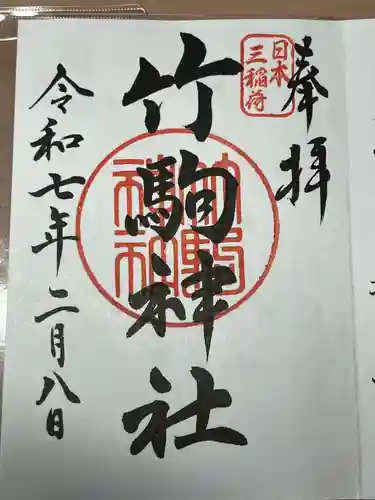 奉拝
日本
三稲荷
竹駒神社
令和七年二月八日